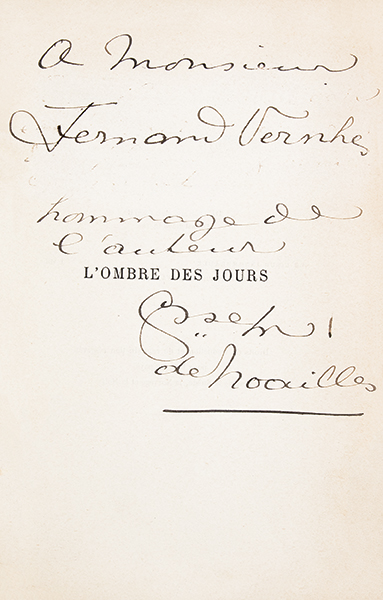 A Monsieur
Fernand Vernhes
hommage de
l'auteur
L'OMBRE DES JOURS
Csse M
de Noailles